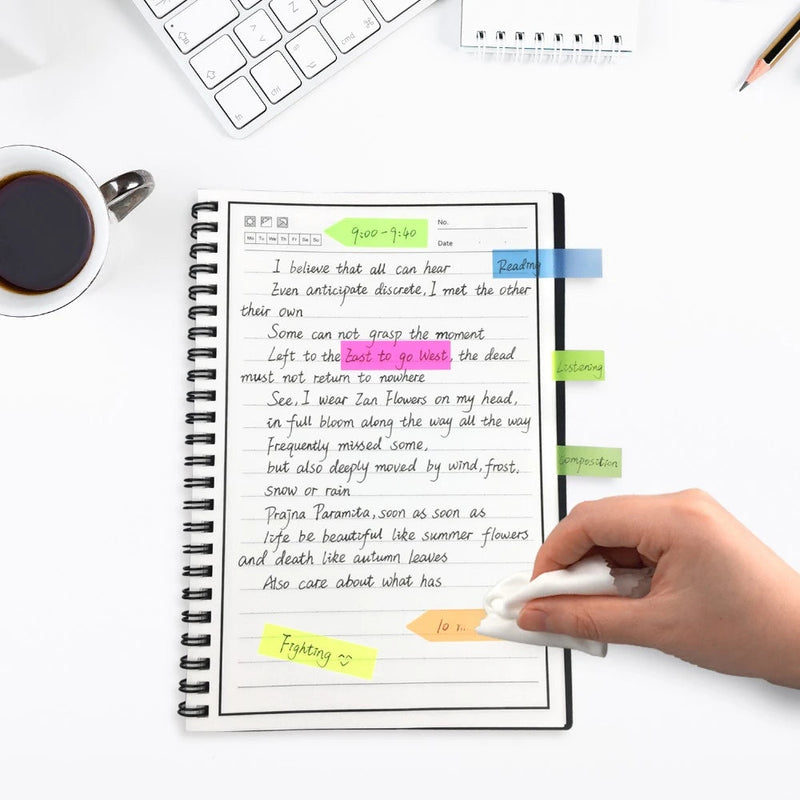 command
cmd
option
ctrl
fn
No.
Mo Tu We Th Fr Sa Su
9:00-9:40
Date
I believe that all can hear
Reading
Even anticipate discrete, I met the other
their own
Some can not grasp the moment
Left to the East to go West, the dead
Listening
must not return to nowhere
See, I wear Zan Flowers on my head,
in full bloom along the way all the way
Frequently missed some,
but also deeply moved by wind, frost,
Composition
snow or rain
Prajna Paramita, soon as soon as
life be beautiful like summer flowers
and death like autumn leaves
Also care about what has
10
Fighting